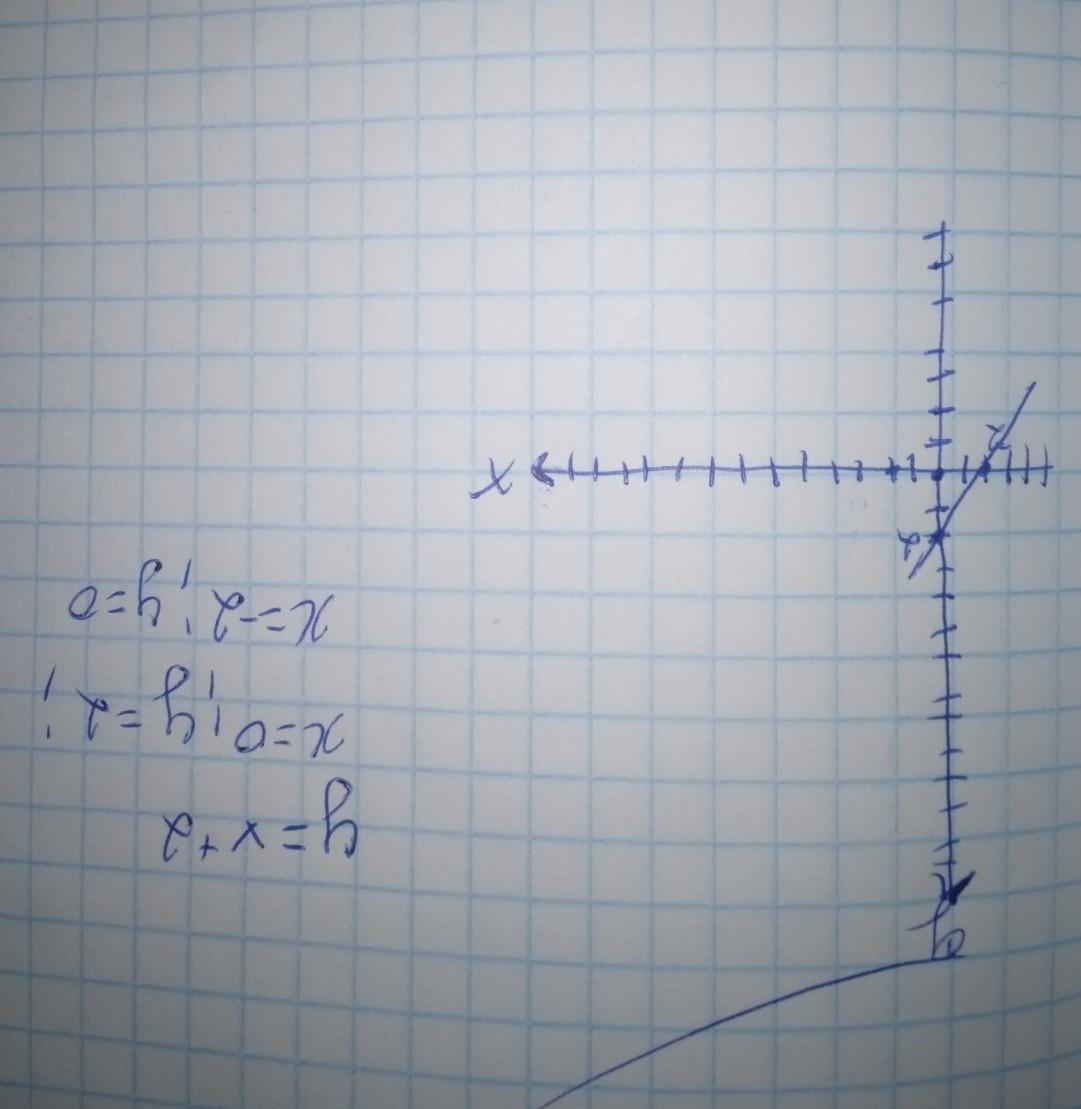 y=x+2
x=0; y=2;
x=-2; y=0
y
2
-2
x